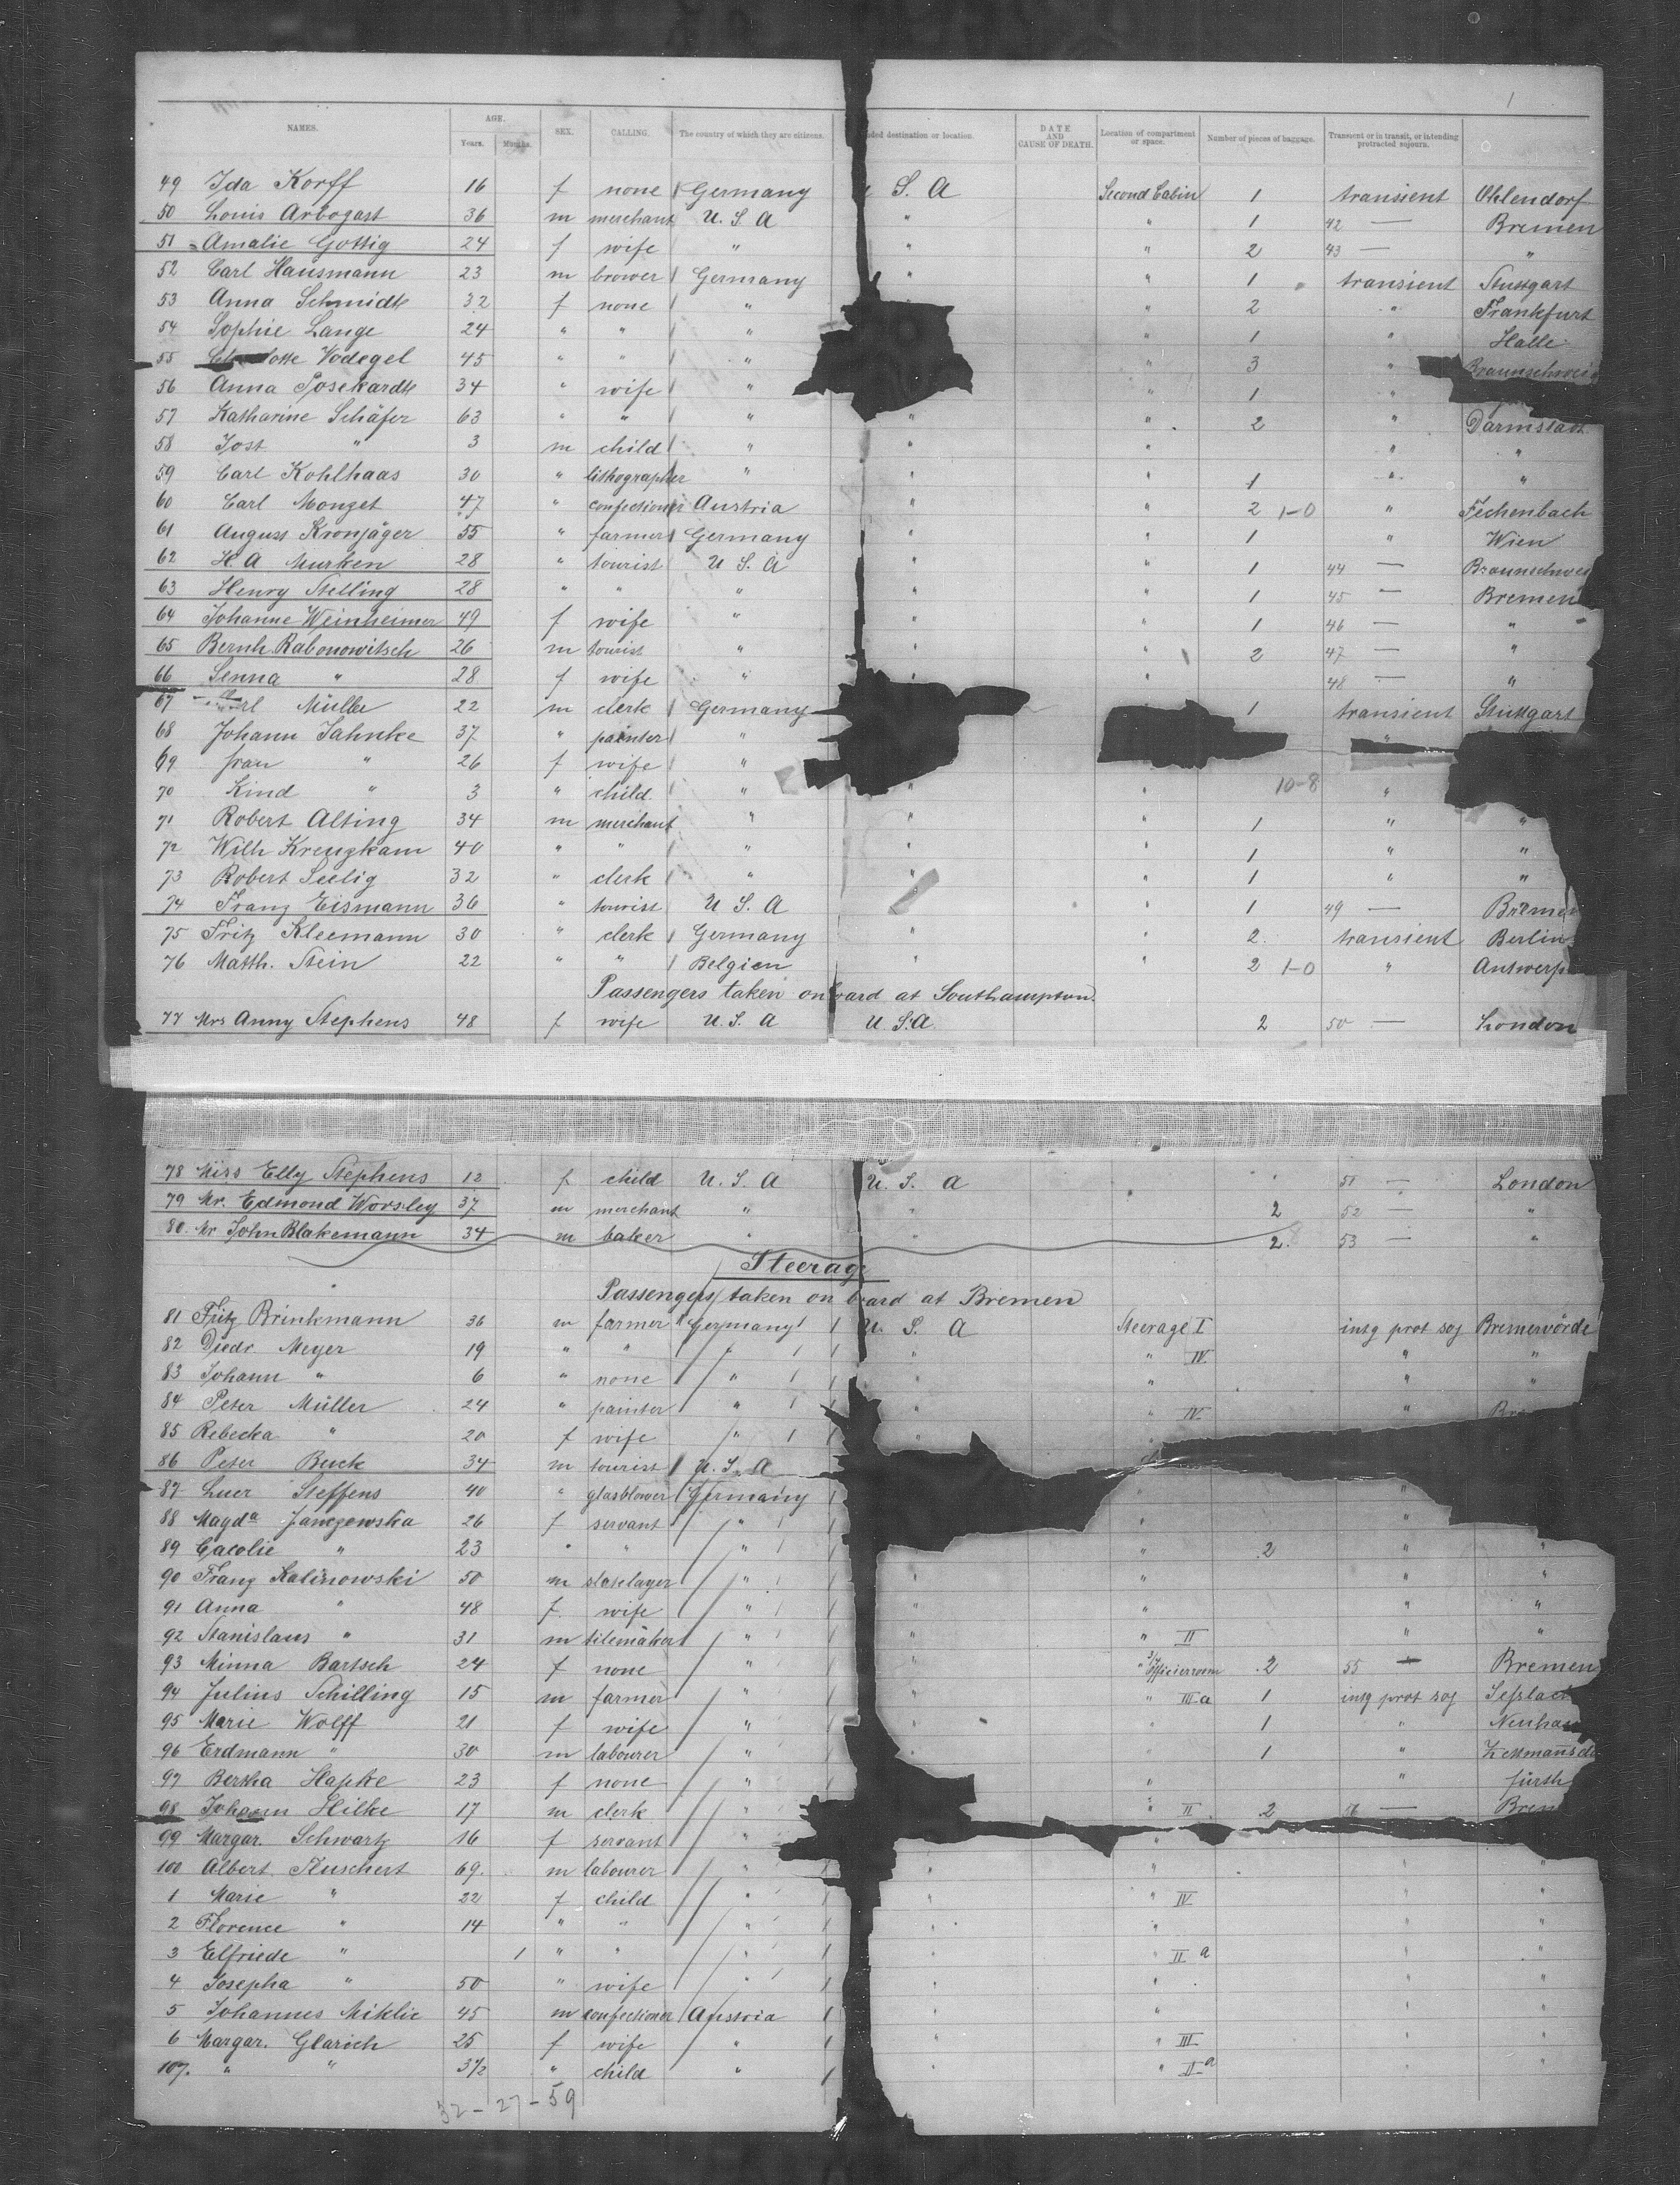 1
NAMES. AGE. Years. Months. SEX. CALLING. The country of which they are citizens. ded destination or location. DATE AND CAUSE OF DEATH. Location of compartment or space. Number of pieces of baggage. Transient or in transit, or intending protracted sojourn.
49 Ida Korff 16 f none Germany S. A Second Cabin 1 transient Ohlendorf
50 Louis Arbogast 36 m merchant U. S. A " " 1 42 — Bremen
51 Amalie Gottig 24 f wife " " " 2 43 — "
52 Carl Hausmann 23 m brower Germany " " 1 transient Stuttgart
53 Anna Schmidt 32 f none " " 2 " Frankfurt
54 Sophie Lange 24 " " " " 1 " Halle
55 Vodegel 45 " " " " 3 " Braunschweig
56 Anna Posekardt 34 " wife " " 1 "
57 Katharine Schäfer 63 " " " " " 2 " Darmstadt
58 Jost " 3 m child " " " " "
59 Carl Kohlhaas 30 " lithographer " " " 1 " "
60 Carl Monget 47 " confectioner Austria " " 2 1-0 " Fechenbach
61 August Kronjäger 55 " farmer Germany " " 1 " Wien
62 H. A Murken 28 " tourist U S. A " " 1 44 — Braunschwei
63 Henry Stelling 28 " " " " " 1 45 — Bremen
64 Johanne Weinheimer 49 f wife " " " 1 46 — "
65 Bernh. Rabonowitsch 26 m tourist " " " 2 47 — "
66 Senna " 28 f wife " " " 48 — "
67 Müller 22 m clerk Germany 1 transient Stuttgart
68 Johann Jahnke 37 " painter " "
69 frau " 26 f wife "
70 Kind " 3 " child " " " 10-8 "
71 Robert Alting 34 m merchant " " " 1 " "
72 Wilh Kreugkam 40 " " " " " 1 " "
73 Robert Seelig 32 " clerk " " " 1 " "
74 Franz Eismann 36 " tourist U. S. A " " 1 49 — Bremen
75 Fritz Kleemann 30 " clerk Germany " " 2. transient Berlin
76 Matth. Stein 22 " " Belgien " " 2 1-0 " Antwerp
Passengers taken on board at Southampton.
77 Mrs Anny Stephens 48 f wife U. S. A U. S. A 2 50 — London
78 Miss Elly Stephens 12 f child U. S. A U. S. A " 51 — London
79 Mr. Edmond Worsley 37 m merchant " " " 2 52 — "
80. Mr John Blakemann 34 m baker " " 2. 53 — "
Steerage
Passengers taken on board at Bremen
81 Fritz Brinkmann 36 m farmer Germany U. S. A Steerage I intg prot soj Bremervörde
82 Diedr. Meyer 19 " " " " " IV " "
83 Johann " 6 " none " " " " "
84 Peter Müller 24 " painter " " " IV "
85 Rebecka " 20 f wife " "
86 Peter Buck 34 m tourist U. S. A
87 Luer Steffens 40 " glasblower Germany " "
88 Magda Janczewska 26 f servant " " "
89 " 23 " " " " 2 " "
90 Franz Kalinowski 50 m " " " " "
91 Anna " 48 f. wife " " " " "
92 Stanislaus " 31 m tilemaker " " " II " "
93 Minna Bartsch 24 f none " " " Officierroom 2 55 — Bremen
94 Julius Schilling 15 m farmer " " " III a 1 intg prot soj Seßlach
95 Marie Wolff 21 f wife " " " 1 " Neuhau
96 Erdmann " 30 m labourer " " 1 "
97 Bertha Hapke 23 f none " " " fürth
98 Johann Hilke 17 m clerk " " II 2 — Brem
99 Margar. Schwartz 16 f servant " "
100 Albert Fluschert 69. m labourer " " " " "
1 Marie " 22 f child " " " IV " "
2 Florence " 14 " " " " " " "
3 Elfriede " 1 " " " " " II a " "
4 Josepha " 50 " wife " " " " "
5 Johannes Miklic 45 m confectioner Austria " " " "
6 Margar. Glarich 25 f wife " " " III " "
107. " " 3½ " child " " " II a " "
32-27-59